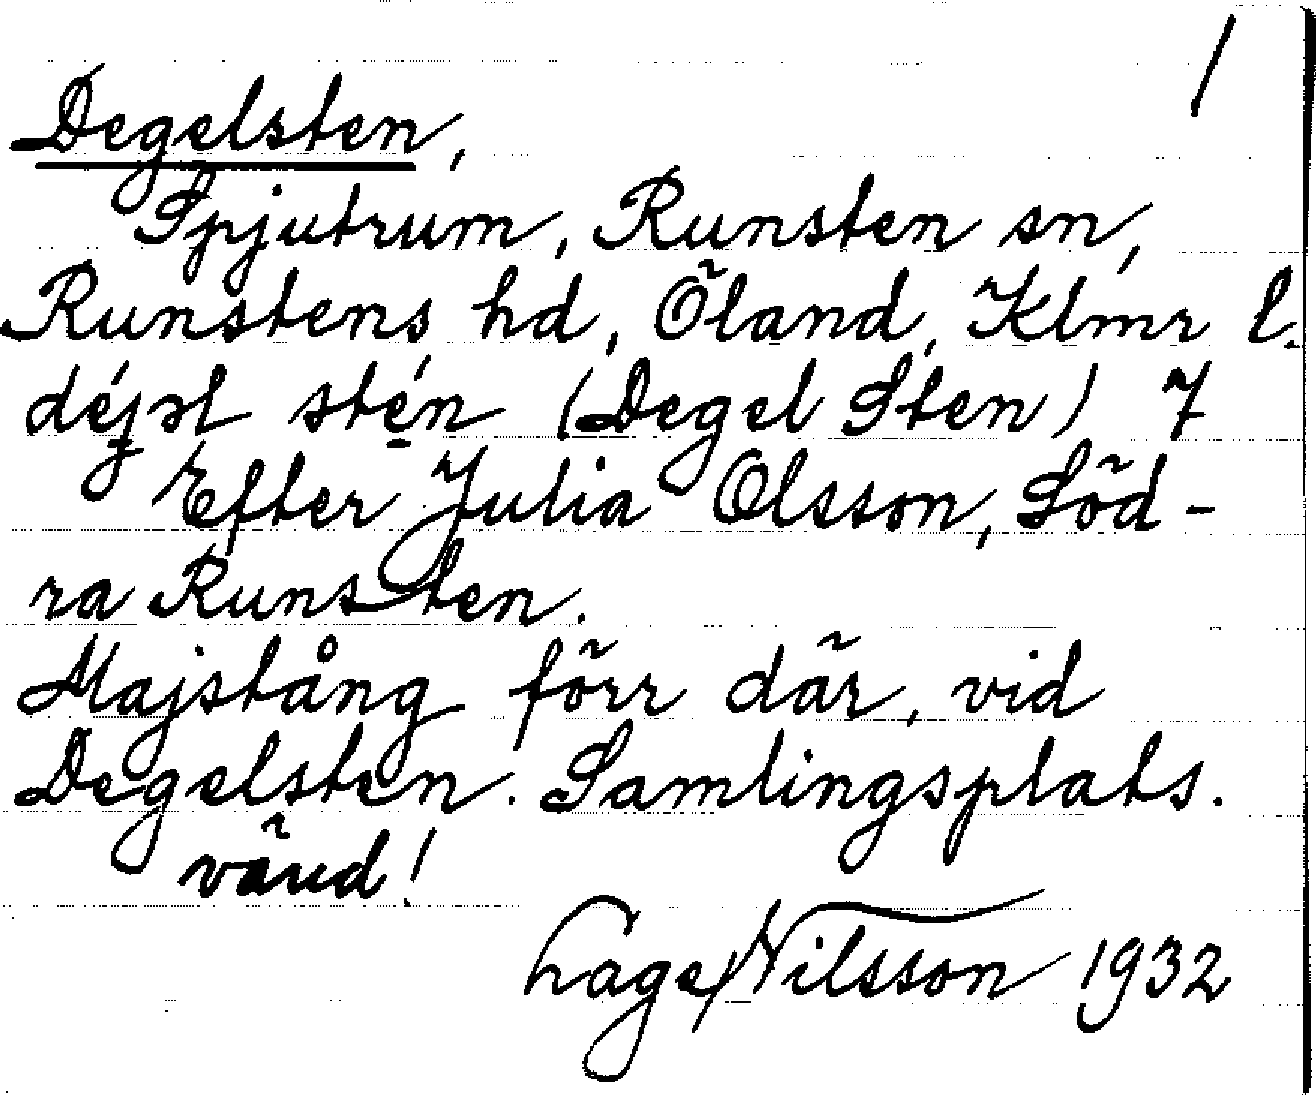 1
Degelsten,
Spjutrum, Runsten sn,
Runstens hd, Öland, Klmr l.
déjəl stén (Degel Sten) 7
Efter Julia Olsson, Söd-
ra Runsten.
Majstång förr där, vid
Degelsten. Samlingsplats.
vänd!
Lage Nilsson 1932